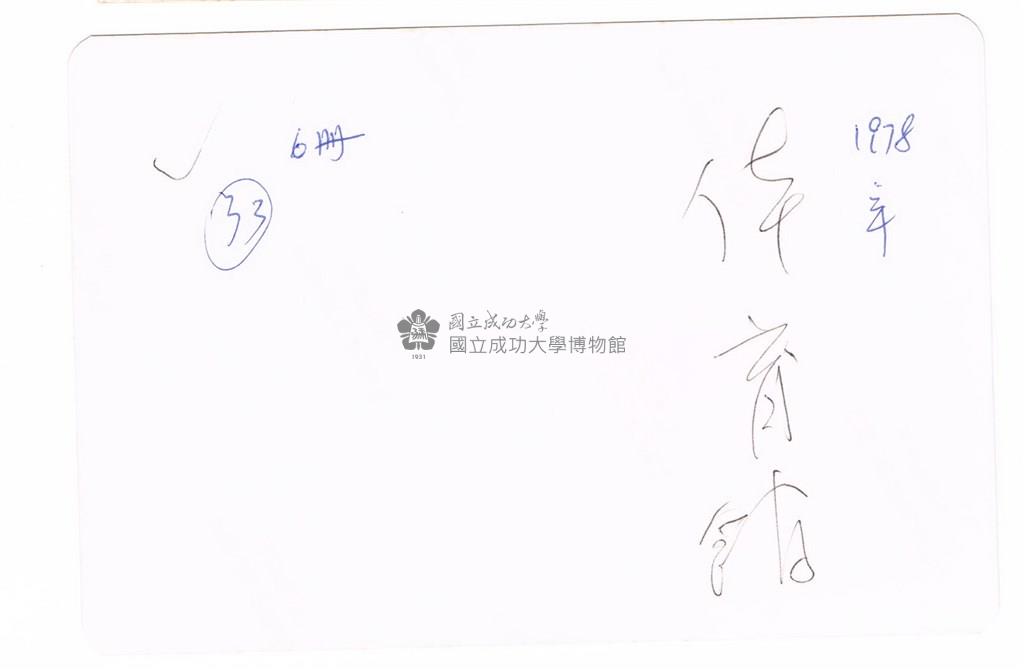 1978
年
体育館
6冊
33
國立成功大學
國立成功大學博物館
1931